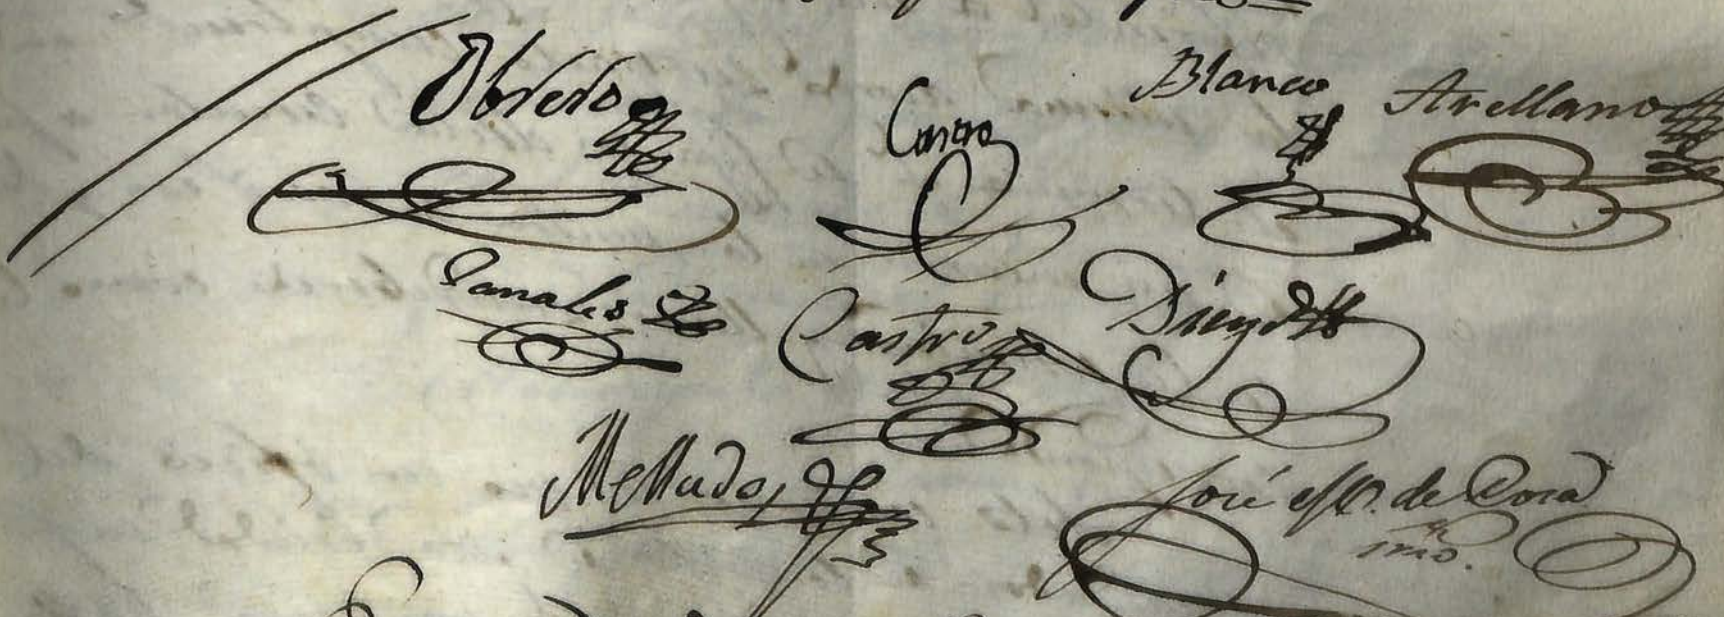 Obrero Castro Blanco Arellano
Canales Castro Diez
Mellado José Mª. de Cora
srio.